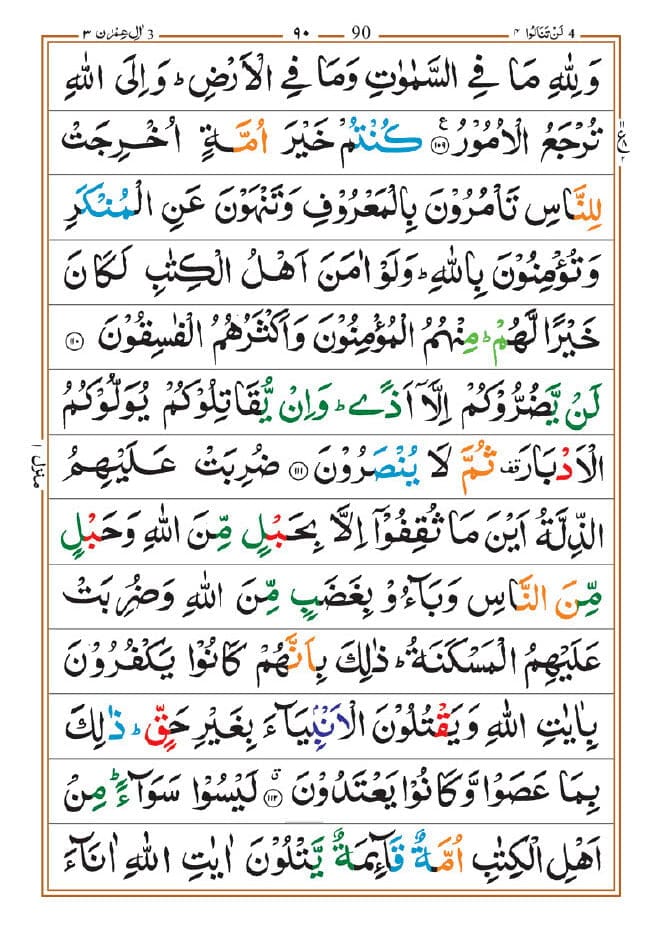 4 لَنْ تَنَالُوا ۴ 90 ۹۰ 3 اٰلِ عِمْرٰن ۳
وَلِلّٰهِ مَا فِي السَّمٰوٰتِ وَمَا فِي الْاَرْضِ ؕ وَاِلَى اللّٰهِ
تُرْجَعُ الْاُمُوْرُ ۧ ﴿۱۰۹﴾ كُنْتُمْ خَيْرَ اُمَّةٍ اُخْرِجَتْ
لِلنَّاسِ تَاْمُرُوْنَ بِالْمَعْرُوْفِ وَتَنْهَوْنَ عَنِ الْمُنْكَرِ
وَتُؤْمِنُوْنَ بِاللّٰهِ ؕ وَلَوْ اٰمَنَ اَهْلُ الْكِتٰبِ لَكَانَ
خَيْرًا لَّهُمْ ؕ مِنْهُمُ الْمُؤْمِنُوْنَ وَاَكْثَرُهُمُ الْفٰسِقُوْنَ ﴿۱۱۰﴾
لَنْ يَّضُرُّوْكُمْ اِلَّاۤ اَذًى ؕ وَاِنْ يُّقَاتِلُوْكُمْ يُوَلُّوْكُمُ
الْاَدْبَارَ قف ثُمَّ لَا يُنْصَرُوْنَ ﴿۱۱۱﴾ ضُرِبَتْ عَلَيْهِمُ
الذِّلَّةُ اَيْنَ مَا ثُقِفُوْۤا اِلَّا بِحَبْلٍ مِّنَ اللّٰهِ وَحَبْلٍ
مِّنَ النَّاسِ وَبَآءُوْ بِغَضَبٍ مِّنَ اللّٰهِ وَضُرِبَتْ
عَلَيْهِمُ الْمَسْكَنَةُ ؕ ذٰلِكَ بِاَنَّهُمْ كَانُوْا يَكْفُرُوْنَ
بِاٰيٰتِ اللّٰهِ وَيَقْتُلُوْنَ الْاَنْۢبِيَآءَ بِغَيْرِ حَقٍّ ؕ ذٰلِكَ
بِمَا عَصَوْا وَّكَانُوْا يَعْتَدُوْنَ ۙ ﴿۱۱۲﴾ لَيْسُوْا سَوَآءً ؕ مِنْ
اَهْلِ الْكِتٰبِ اُمَّةٌ قَآئِمَةٌ يَّتْلُوْنَ اٰيٰتِ اللّٰهِ اٰنَآءَ
منزل ۱